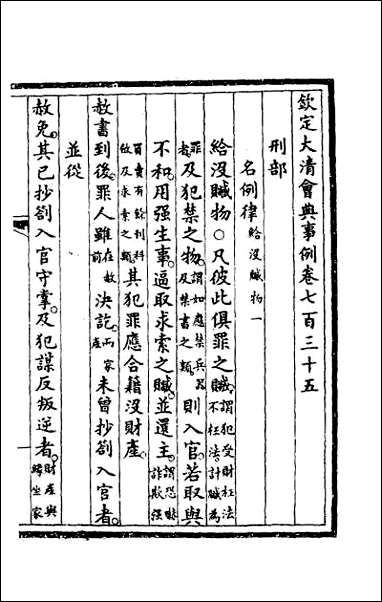 欽定大清會典事例卷七百三十五
刑部
名例律給沒贓物一
給沒贓物○凡彼此俱罪之贓謂犯受財枉法不枉法計贓為
罪者及犯禁之物謂如應禁兵器及禁書之類則入官。若取與
不和。用強生事。逼取求索之贓。並還主。謂恐嚇詐欺強
買賣有餘利科斂及求索之類其犯罪應合籍沒財產。
赦書到後。罪人雖在赦前決訖。而家產未曾抄劄入官者。
並從
赦免。其已抄劄入官守掌。及犯謀反叛逆者。財產與緣坐家